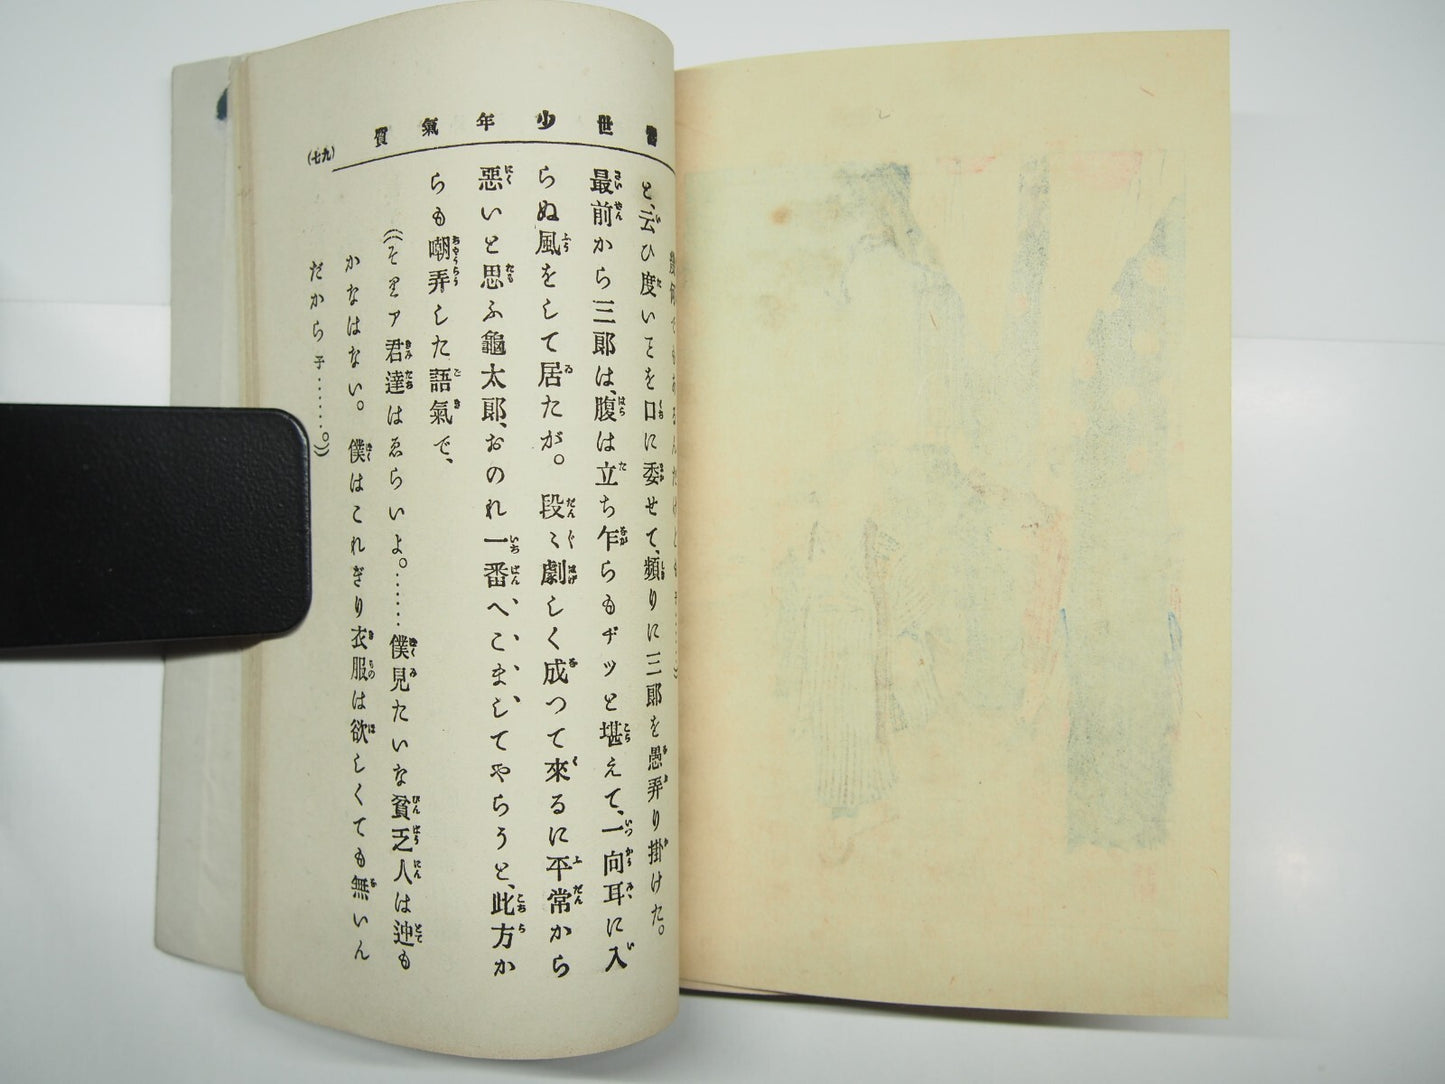 世少年氣質
(九七)
と、云ひ度いことを口に委せて、頻りに三郎を愚弄り掛けた。
最前から三郎は、腹は立ち乍らもヂッと堪えて、一向耳に入
らぬ風をして居たが。段〻劇しく成つて來るに平常から
悪いと思ふ龜太郎、おのれ一番へこましてやらうと、此方か
らも嘲弄した語氣で、
((そりア君達はゑらいよ。……僕見たいな貧乏人は迚も
かなはない。僕はこれぎり衣服は欲しくても無いん
だから子……。))